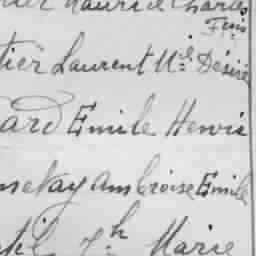 Maurice Charles
Fris
tier Laurent Nie Désiré
ard Emile Henrie
nsekay Ambroise Emile
Marie